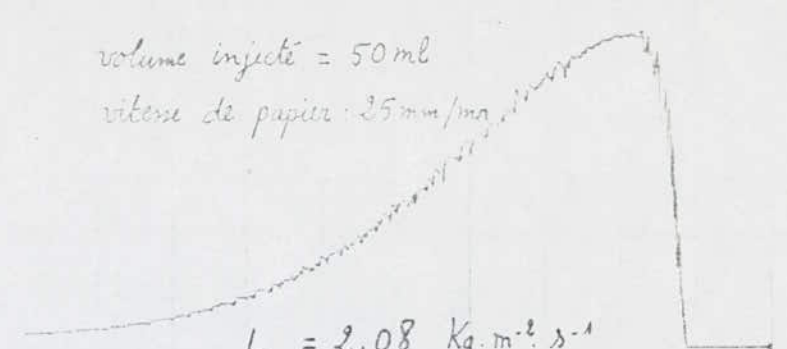 volume injecté = 50 ml
vitesse de papier : 25 mm/mn
= 2,08 Kg. m⁻². s⁻¹